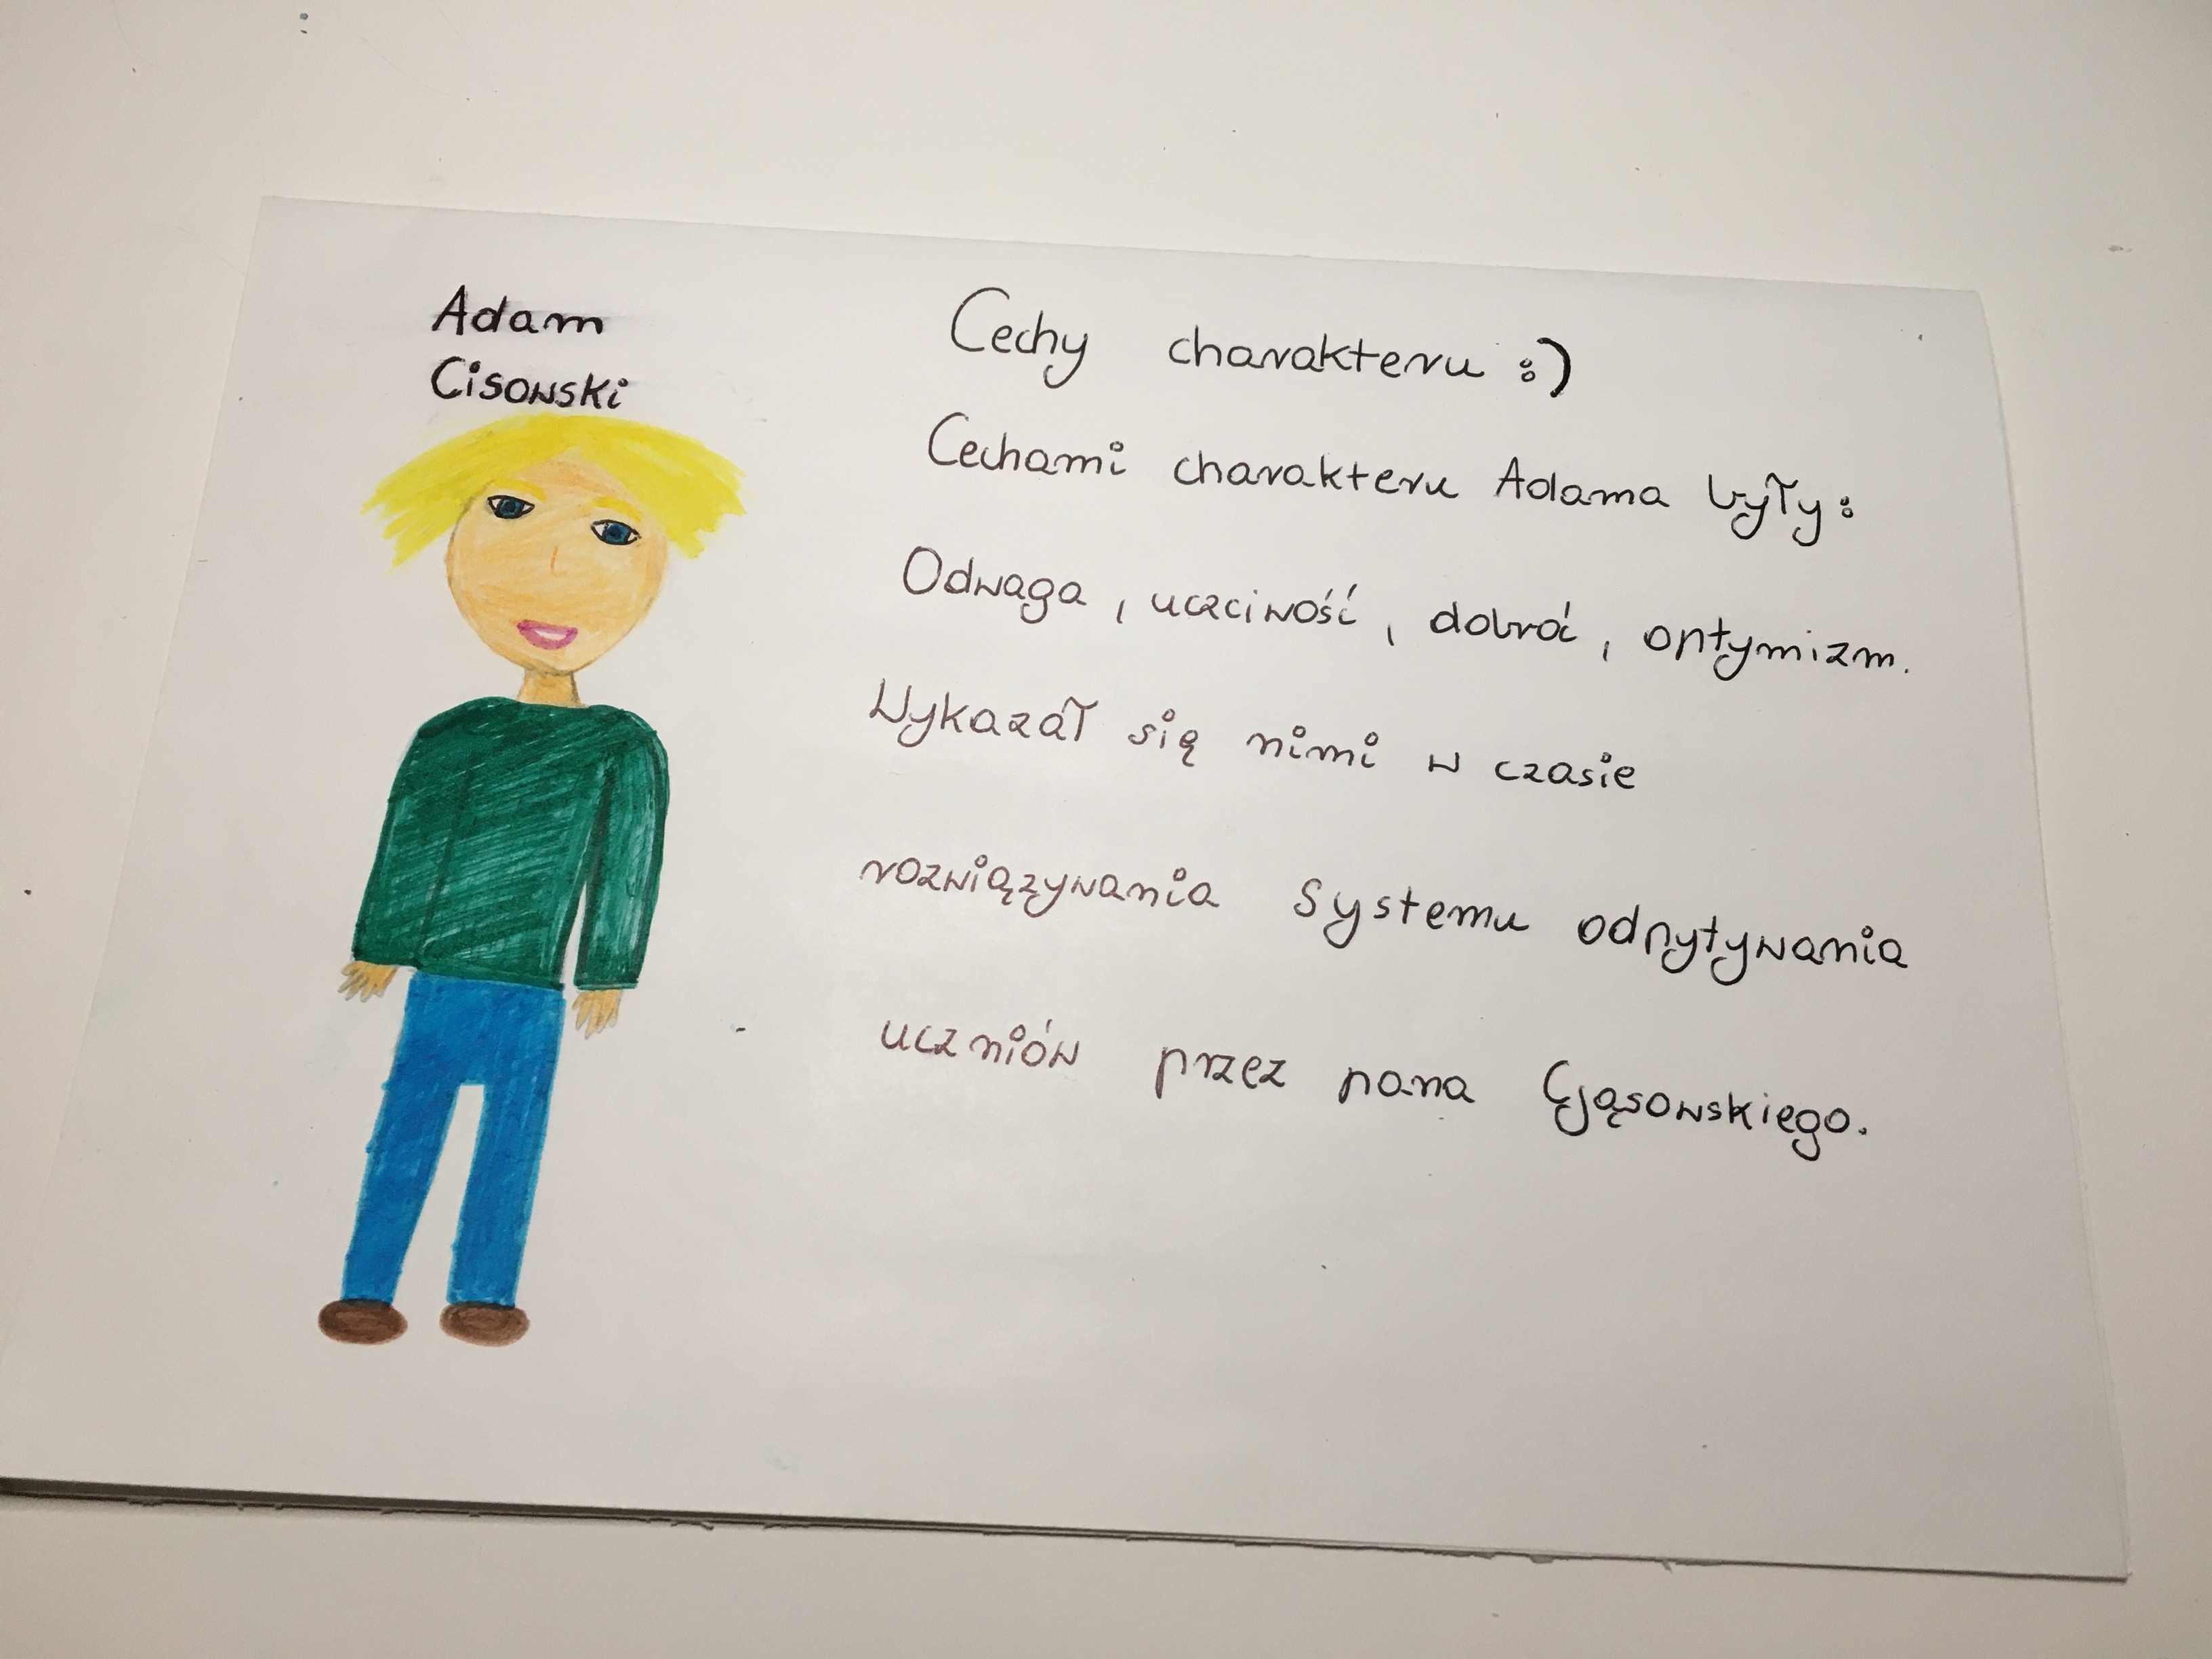 Adam
Cisowski
Cechy charakteru :)
Cechami charakteru Adama były:
Odwaga, uczciwość, dobroć, optymizm.
Wykazał się nimi w czasie
rozwiązywania systemu odpytywania
uczniów przez pana Gąsowskiego.